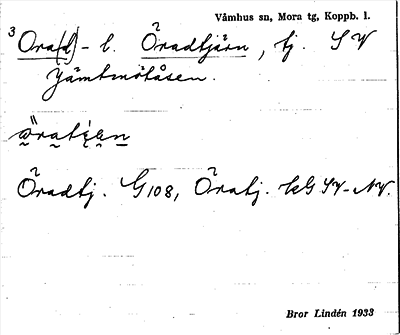 Våmhus sn, Mora tg, Koppb. l.
3 Ora(d)- l. Öradtjärn, tj. SV
Jämtmötåsen.
öratjen
Öradtj. G108, Öratj. kG SV-NV.
Bror Lindén 1933